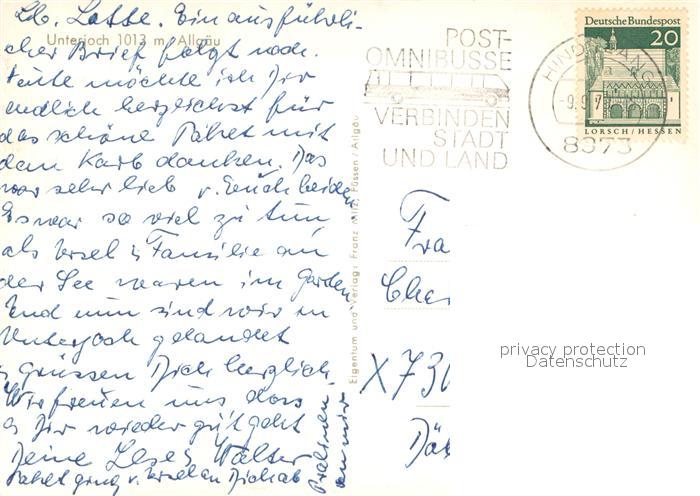 Lb. Lotte. Ein ausführli-
cher Brief folgt noch.
Unterjoch 1013 m / Allgäu
Heute möchte ich Dir
endlich herzlichst für
das schöne Päket mit
dem Korb danken. Das
war sehr lieb v. Euch beiden.
Es war so viel zu tun,
als Ursel's Familie an
der See waren im Garden.
Und nun sind wir in
Unterjoch gelandet
& grüssen Dich herzlich.
Wir freuen uns dass
es Dir wieder gut geht
Deine Lese & Walter
Paket ging v. Ursel an Dich ab
von mir
Eigentum und Verlag: Franz Milz, Füssen/Allgäu
POST-
OMNIBUSSE
VERBINDEN
STADT
UND LAND
HINDELANG
-9.9.7
8973
Deutsche Bundespost
20
LORSCH/HESSEN
Fra
Cher
X 730
Döb
privacy protection
Datenschutz